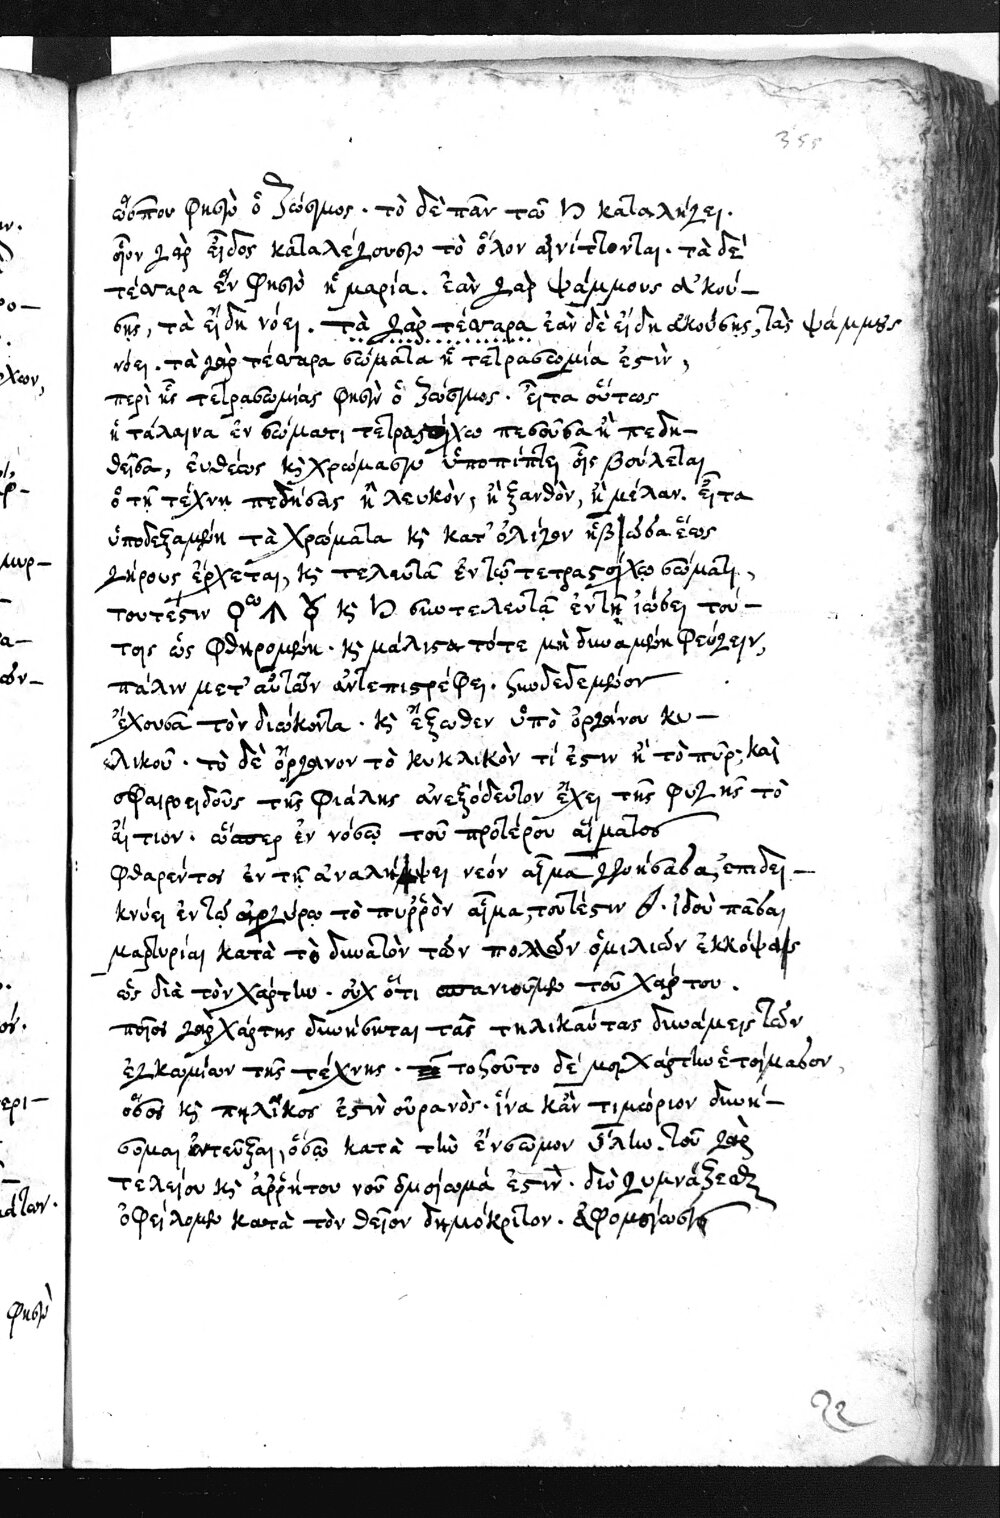 355
φησὶν ὁ ζώσιμος. τὸ δὲ πᾶν τῶ ♄ καταλήγει.
οἷον γὰρ εἶδος καταλέγουσιν τὸ ὅλον αἰνίττονται. τὰ δὲ
τέσσαρα ἕν φησὶν ἡ μαρία. ἐὰν γὰρ ψάμμους ἀκού-
σης, τὰ εἴδη νόει. τὰ γὰρ τέσσαρα ἐὰν δὲ εἴδη ἀκούσης, τὰς ψάμμους
νόει. τὰ γὰρ τέσσαρα σώματα ἡ τετρασωμία ἐστὶν,
περὶ ἧς τετρασωμίας φησὶν ὁ ζώσιμος. εἶτα οὕτως
ἡ τάλαινα ἐν σώματι τετραστοίχω πεσοῦσα ἢ πεδη-
θεῖσα, εὐθέως καὶ χρώμασιν ὑποπίπτει οἷς βούλεται
ὁ τῇ τέχνῃ πεδήσας ἢ λευκὸν, ἢ ξανθὸν, ἢ μέλαν. εἶτα
ὑποδεξαμένη τὰ χρώματα καὶ κατ' ὀλίγον ἡβῶσα ἕως
γήρους ἔρχεται, καὶ τελευτᾶ ἐν τῷ τετραστοίχῳ σώματι,
τουτέστιν καὶ ♄ συντελευτᾷ ἐν τῇ ἰώσει τού-
τοις ὡς φθειρομένη. καὶ μάλιστα τότε μὴ δυναμένη φεύγειν,
πάλιν μετ' αὐτῶν ἀντεπιστρέφει. συνδεδεμένον
ἔχουσα τὸν διώκοντα. καὶ ἔξωθεν ὑπὸ ὀργάνου κυ-
κλικοῦ. τὸ δὲ ὄργανον τὸ κυκλικὸν τί ἐστιν ἢ τὸ πῦρ; καὶ
σφαιροειδοῦς τῆς φιάλης ἀνεξόδευτον ἔχει τῆς φυγῆς τὸ
αἴτιον. ὥσπερ ἐν νόσῳ τοῦ προτέρου αἵματος
φθαρέντος ἐν τῇ ἀναλήψει νέον αἷμα γεννήσασα, ἐπιδει-
κνύει ἐν τῷ ἀργύρῳ τὸ πυρρὸν αἷμα, τουτέστιν. ἰδοὺ πᾶσαι
μαρτυρίαι κατὰ τὸ δυνατὸν τῶν πολλῶν ὁμιλιῶν ἐκκόψας
ὡς διὰ τὸν χάρτην. οὐχ ὅτι σπανιοῦμεν τοῦ χάρτου.
ποῖος γὰρ χάρτης δυνήσηται τὰς τηλικαύτας δυνάμεις τῶν
ἐγκωμίων τῆς τέχνης. τοσοῦτο δέ μοι χάρτην ἑτοίμασον,
ὅσος καὶ πηλίκος ἐστὶν οὐρανὸς. ἵνα κἂν τιμώριον δυνή-
σομαι ἐντεῦξαι, ὅσῳ κατὰ τὴν ἔνσωμον ὕλην. τοῦ γὰρ
τελείου καὶ ἀρρήτου νοῦ ὁμοίωμά ἐστιν. διὸ γυμνάζεσθαι
ὀφείλομεν κατὰ τὸν θεῖον δημόκριτον. ἀφομοίωσις